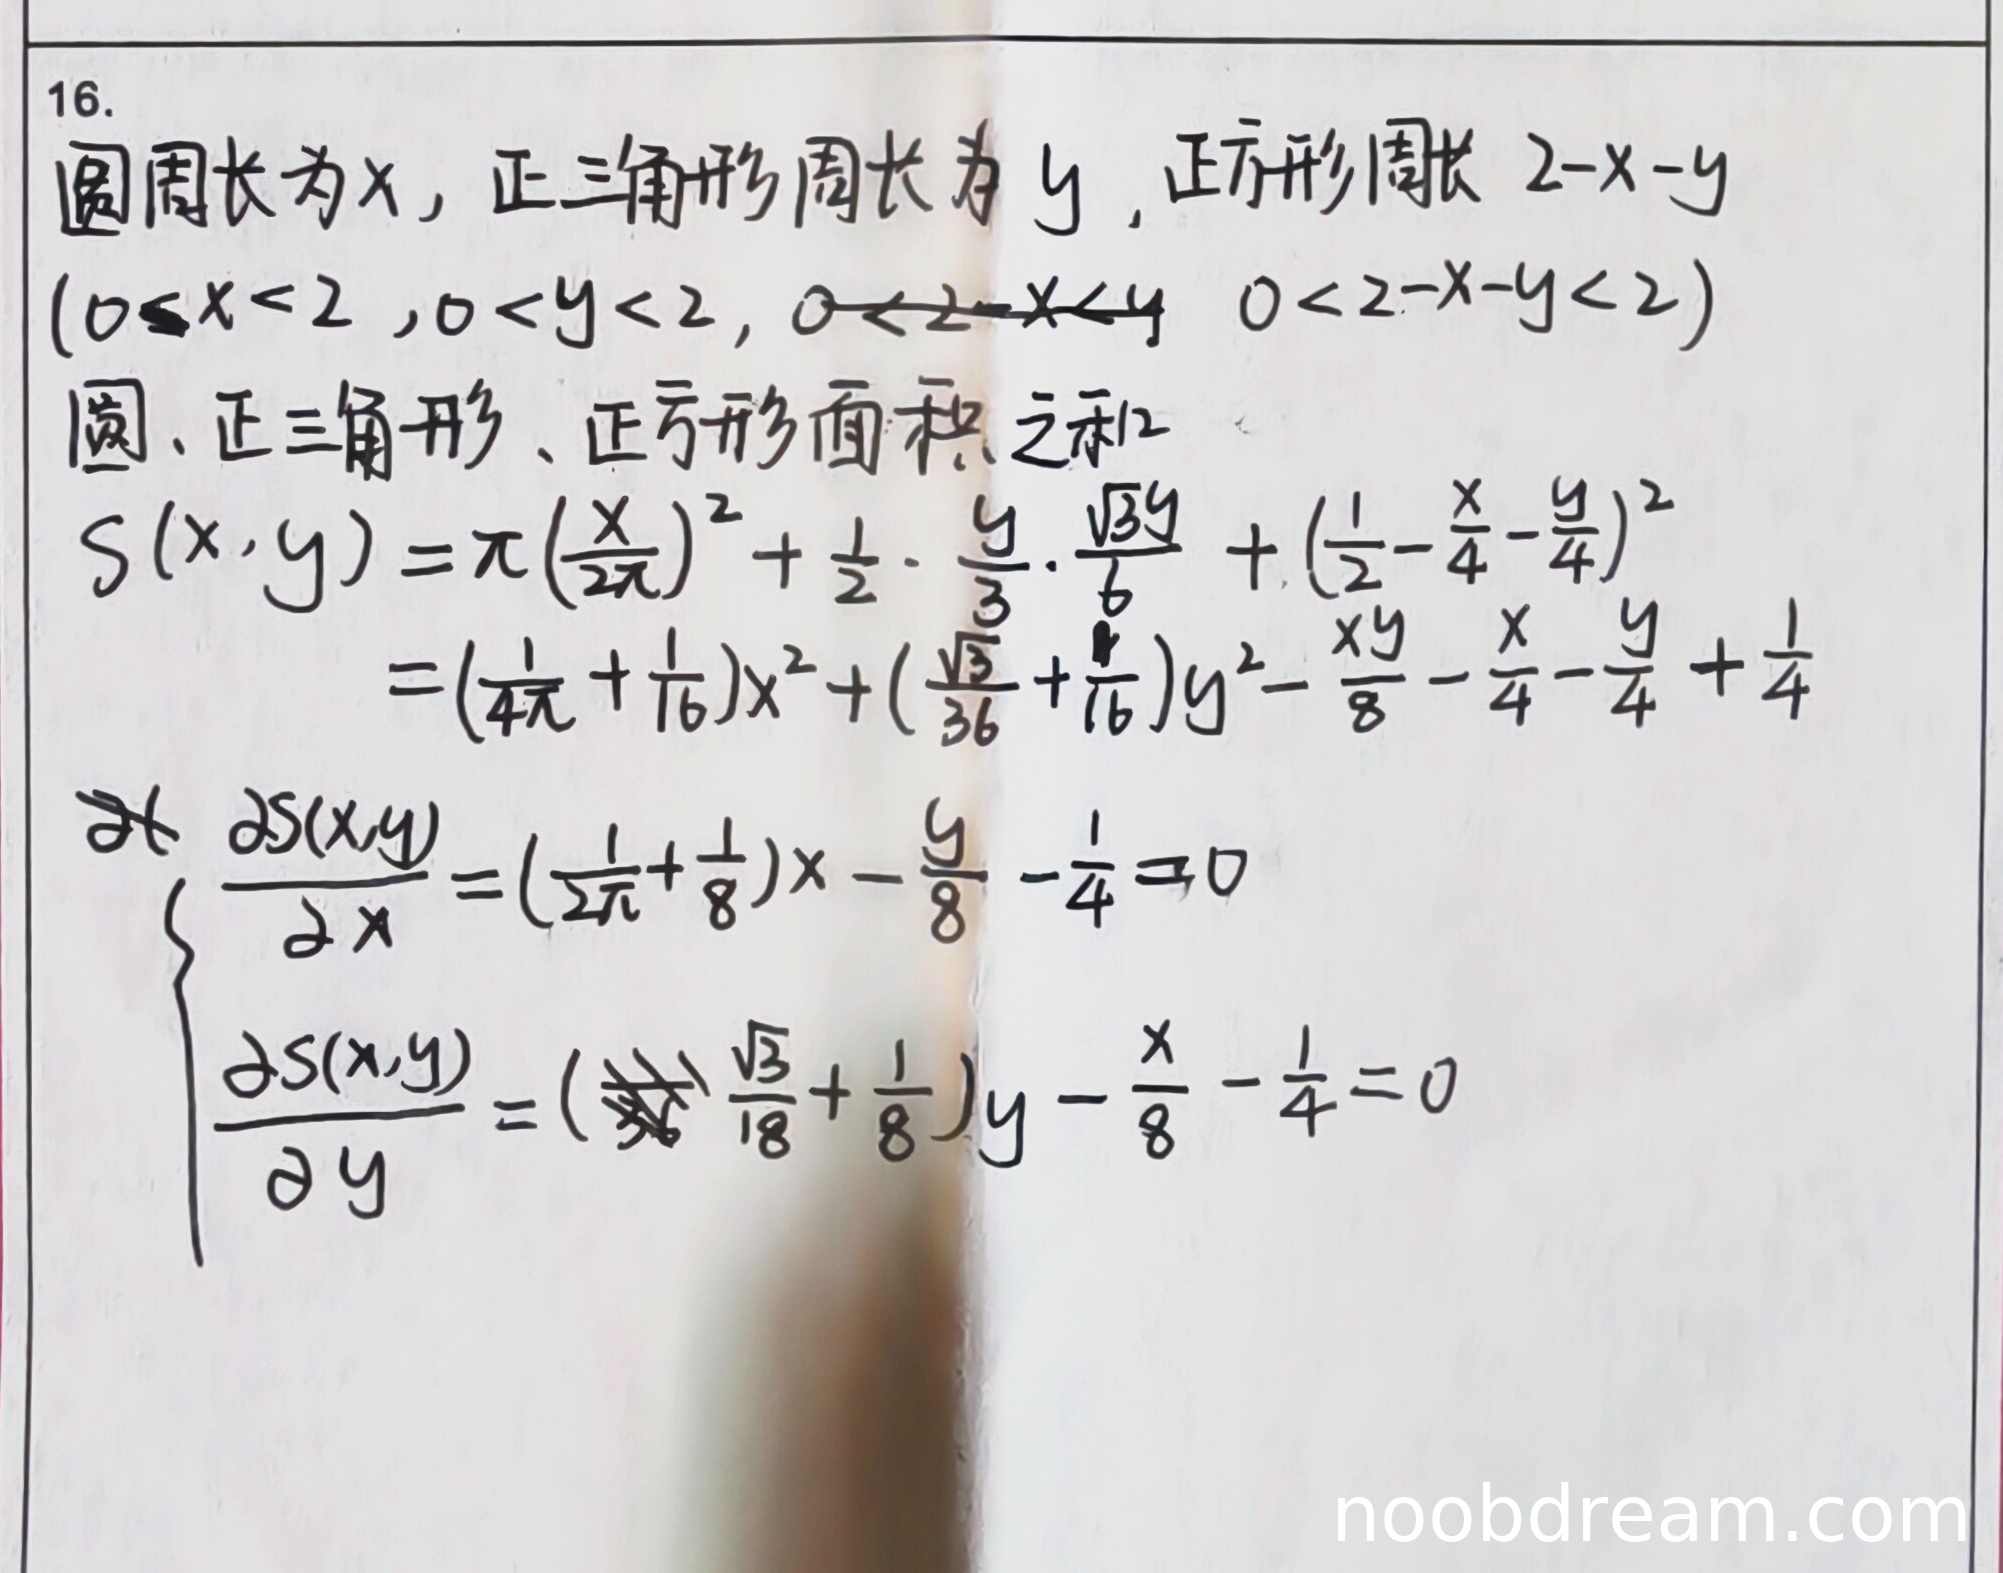 16.
圆周长为x，正三角形周长为y，正方形周长 2-x-y
(0<x<2，0<y<2，0<2-x<y 0<2-x-y<2)
圆、正三角形、正方形面积之和
S(x,y) = π(x/2π)² + 1/2 · y/3 · √3y/6 + (1/2 - x/4 - y/4)²
= (1/4π + 1/16)x² + (√3/36 + 1/16)y² - xy/8 - x/4 - y/4 + 1/4
∂S(x,y)/∂x = (1/2π + 1/8)x - y/8 - 1/4 = 0
∂S(x,y)/∂y = (√3/18 + 1/8)y - x/8 - 1/4 = 0
noobdream.com